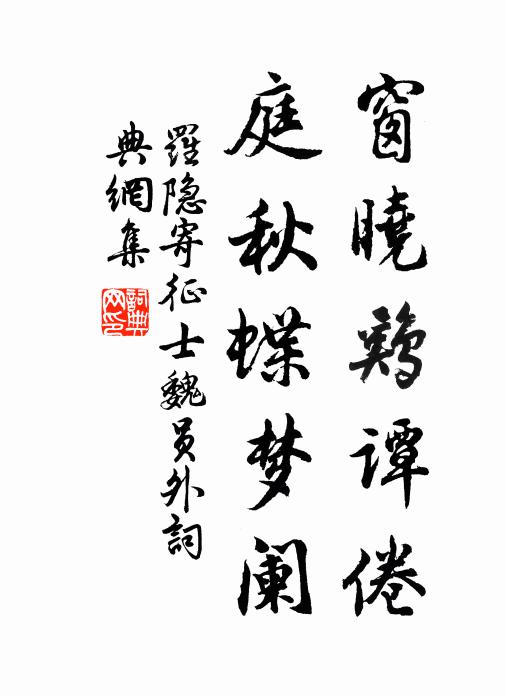 窗曉鷄譚倦
庭秋蝶梦阑
羅隐寄征士魏員外詞
典網集
詞典網印